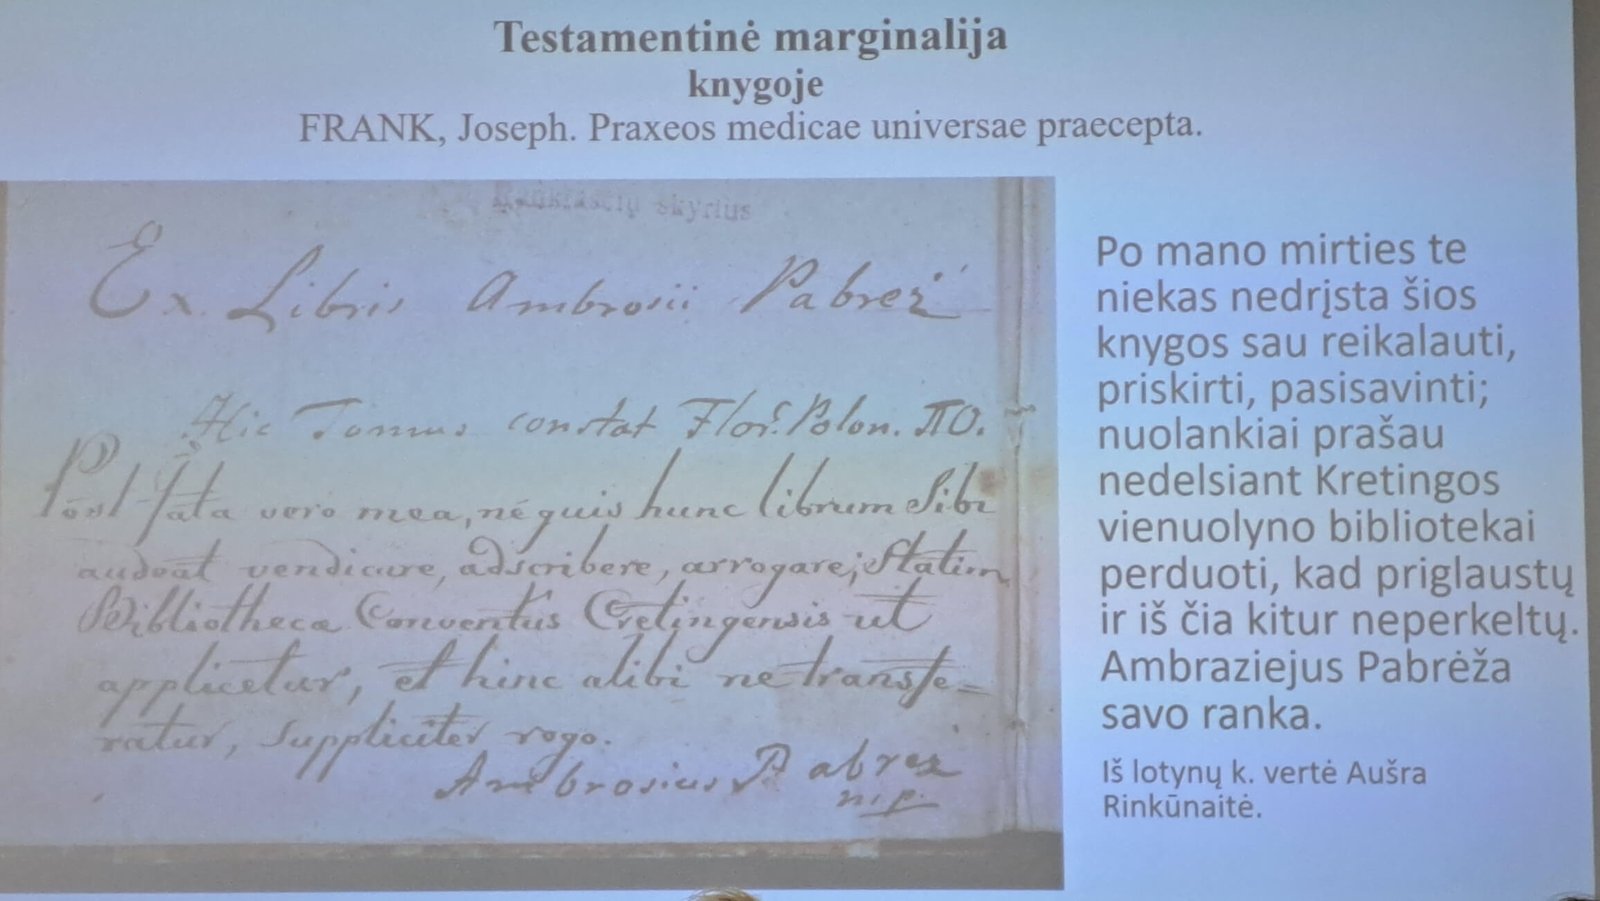 Testamentinė marginalija
knygoje
FRANK, Joseph. Praxeos medicae universae praecepta.
Rankraščių skyrius
Ex Libris Ambrosii Pabreż
Hic Tomus constat Flor. Polon. 110.
Post fata vero mea, ne quis hunc librum Sibi
audeat vendicare, adscribere, arrogare; Statim
Bibliotheca Conventus Cretingensis ut
applicetur, et hinc alibi ne transfe=
ratur, suppliciter rogo.
Ambrosius Pabreż
mp.
Po mano mirties te
niekas nedrįsta šios
knygos sau reikalauti,
priskirti, pasisavinti;
nuolankiai prašau
nedelsiant Kretingos
vienuolyno bibliotekai
perduoti, kad priglaustų
ir iš čia kitur neperkeltų.
Ambraziejus Pabrėža
savo ranka.
Iš lotynų k. vertė Aušra
Rinkūnaitė.